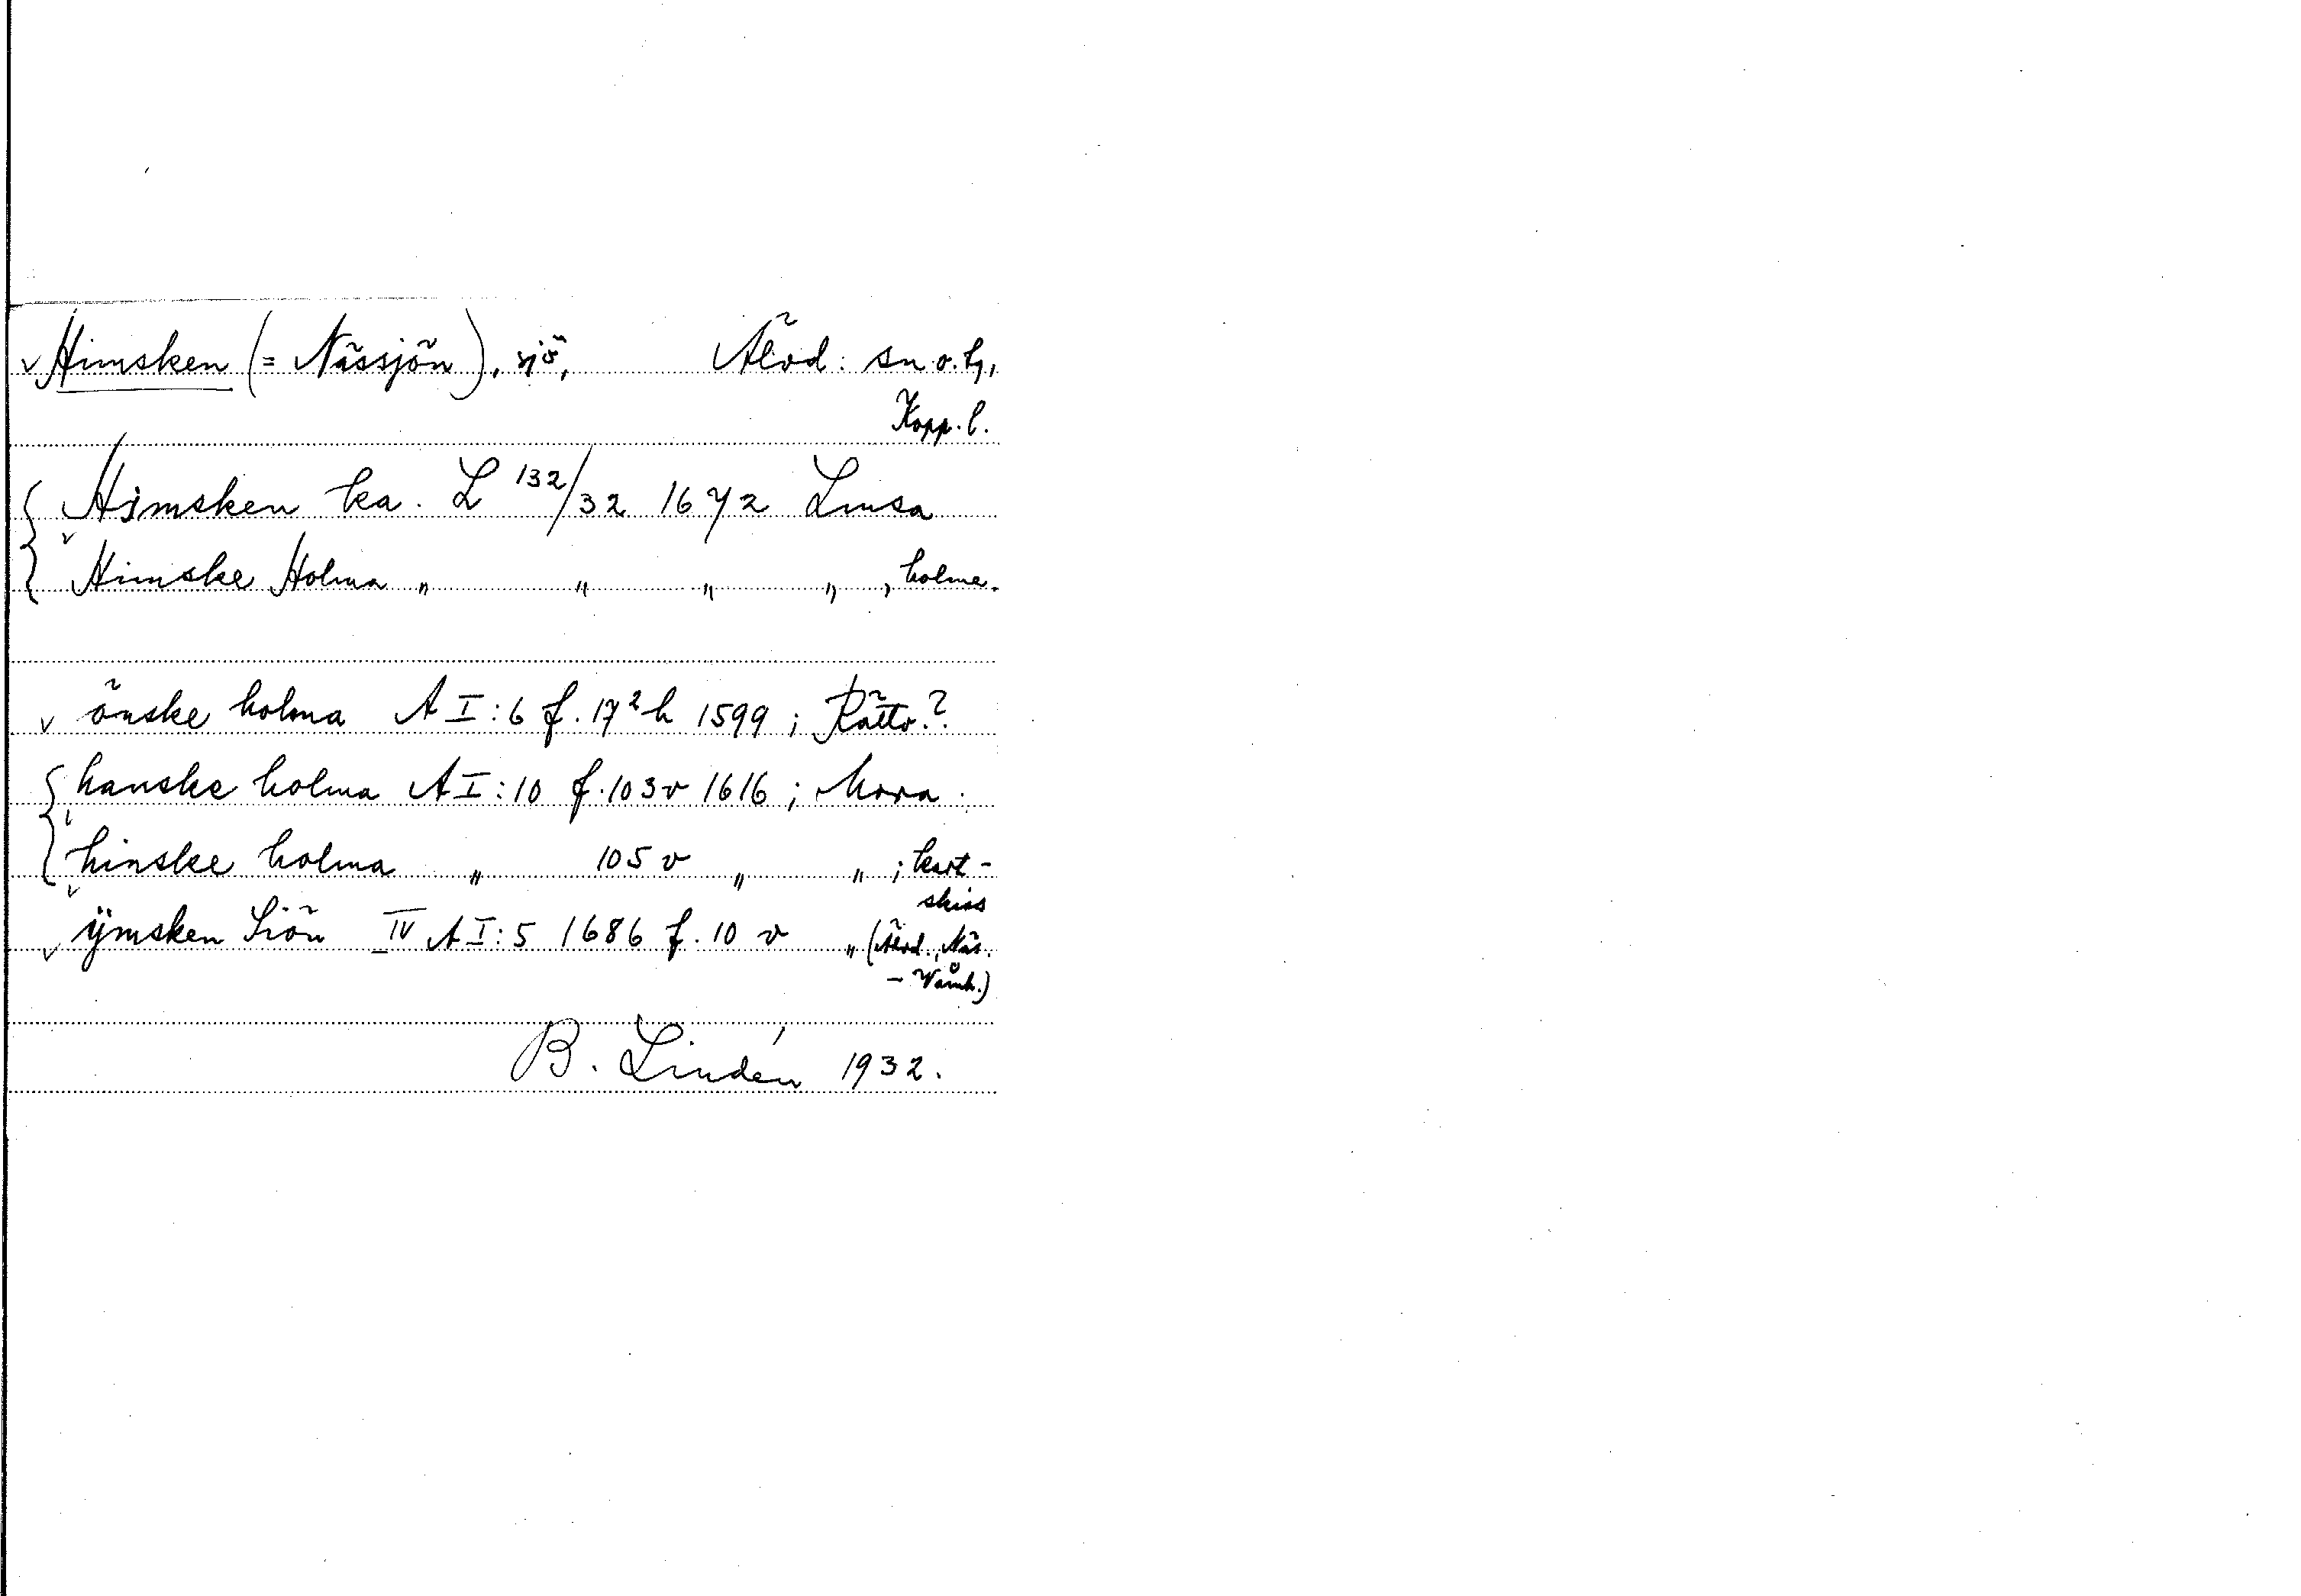 v Himsken (= Nässjön), sjö, Älvd. sn o. h,
Kopp. l.
Himsken ka. L 132/32 1672 Limsa
v Himske Holma „ „ „ „, holme.
v önske holma A I:6 f. 17² h 1599; Rättv.?
hanske holma A I:10 f. 103 v 1616; Mora.
v hinske holma „ 105 v „ „; kart-
skiss
v ÿmsken Siön IV A I:5 1686 f. 10 v „ (Älvd., Näs.
- Våmh.)
B. Lindén 1932.